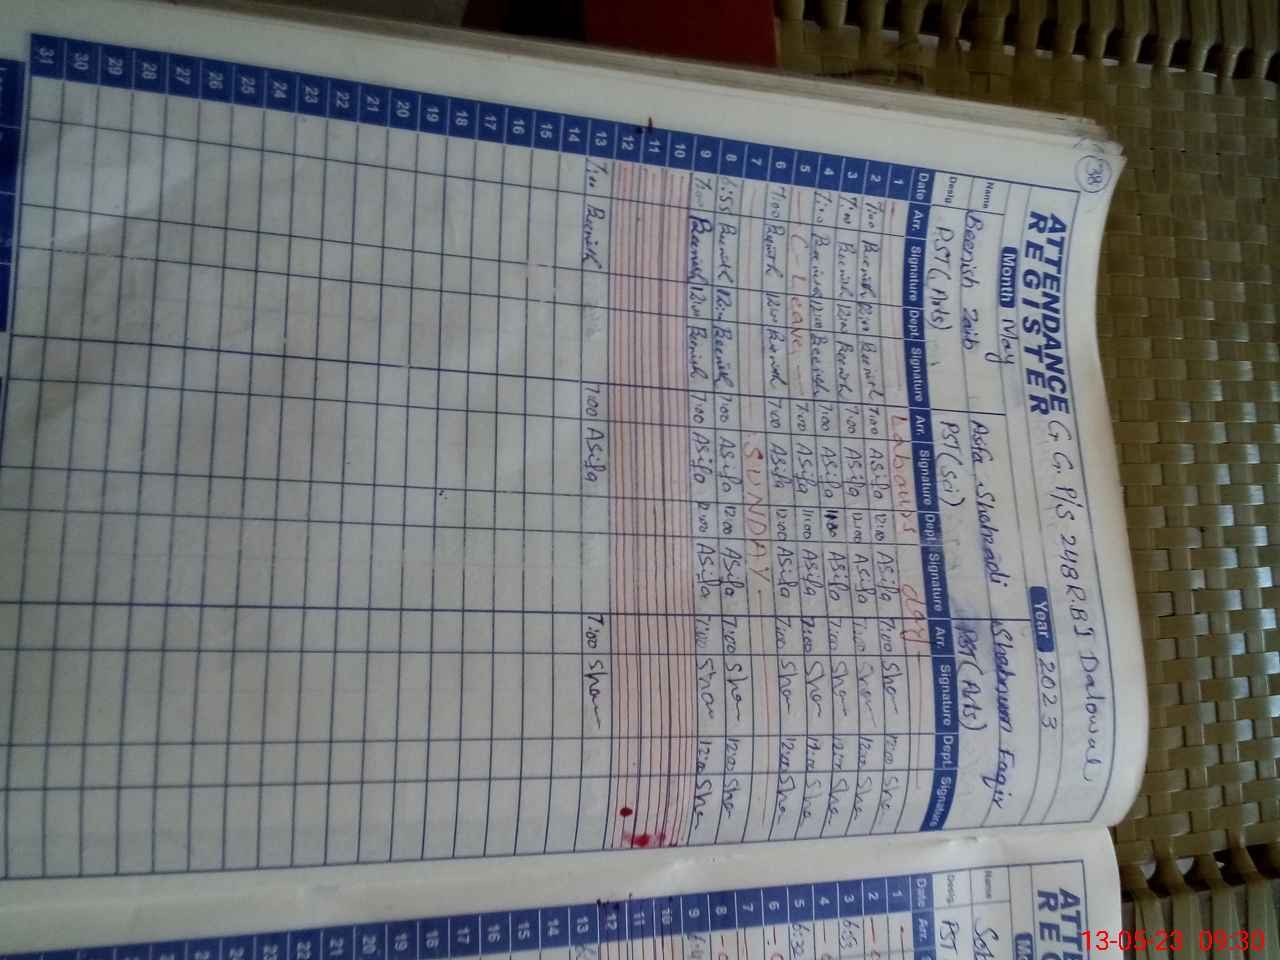 38
ATTENDANCE REGISTER G. G. P/S 248 R.B I Dalowal
Month May Year 2023
Name Beenish Zaib Asifa Shahzadi Shabnum Faqir
Desig. PST (Arts) PST (Sci) PST (Arts)
Date Arr. Signature Dept. Signature Arr. Signature Dept. Signature Arr. Signature Dept. Signature
1 Labours day
2 7:00 Beenish 12:00 Beenish 7:00 Asifa 12:00 Asifa 7:00 Sha 12:00 Sha
3 7:00 Beenish 12:00 Beenish 7:00 Asifa 12:00 Asifa 7:00 Sha 12:00 Sha
4 7:00 Beenish 12:00 Beenish 7:00 Asifa 11:30 Asifa 7:00 Sha 12:00 Sha
5 C-Leave 7:00 Asifa 11:00 Asifa 7:00 Sha Sha
6 7:00 Beenish 12:00 Beenish 7:00 Asifa 12:00 Asifa 7:00 Sha 12:00 Sha
7 SUNDAY
8 6:55 Beenish 12:00 Beenish 7:00 Asifa 12:00 Asifa 7:00 Sha 12:00 Sha
9 7:00 Beenish 12:00 Beenish 7:00 Asifa 12:00 Asifa 7:00 Sha 12:00 Sha
10
11
12
13 7:00 Beenish 7:00 Asifa 7:00 Sha
14
15
16
17
18
19
20
21
22
23
24
25
26
27
28
29
30
31
ATTE
RE
Name
Desig. PST
Date Arr.
1
2
3 6:53
4
5 6:32
6
7
8
9
10
11
12
13
14
15
16
17
18
19
20
21
22
13-05-23 09:30